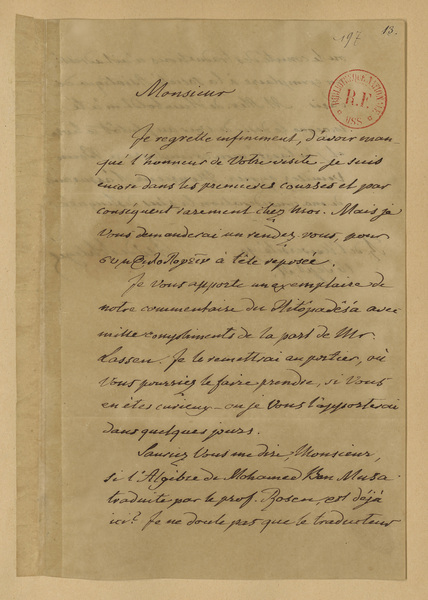 197
13.
BIBLIOTHÈQUE NATIONALE
R.F.
MSS
Monsieur
Je regrette infiniment, d'avoir man-
qué l'honneur de Votre visite. je suis
encore dans les premieres courses et par
conséquent rarement chez moi. Mais je
Vous demanderai un rendez vous, pour
συμφιλολογεῖν à tête reposée.
Je vous apporte un exemplaire de
notre commentaire du Hitôpadêsa avec
mille complimens de la part de Mr.
Lassen. Je le remettrai au portier, où
Vous pourriez le faire prendre, si Vous
en êtes curieux – ou je Vous l'apporterai
dans quelques jours.
Sauriez Vous me dire, Monsieur,
si l'Algèbre de Mohamed Ben Musa
traduite par le prof. Rosen, est déjà
ici? Je ne doute pas que le traducteur